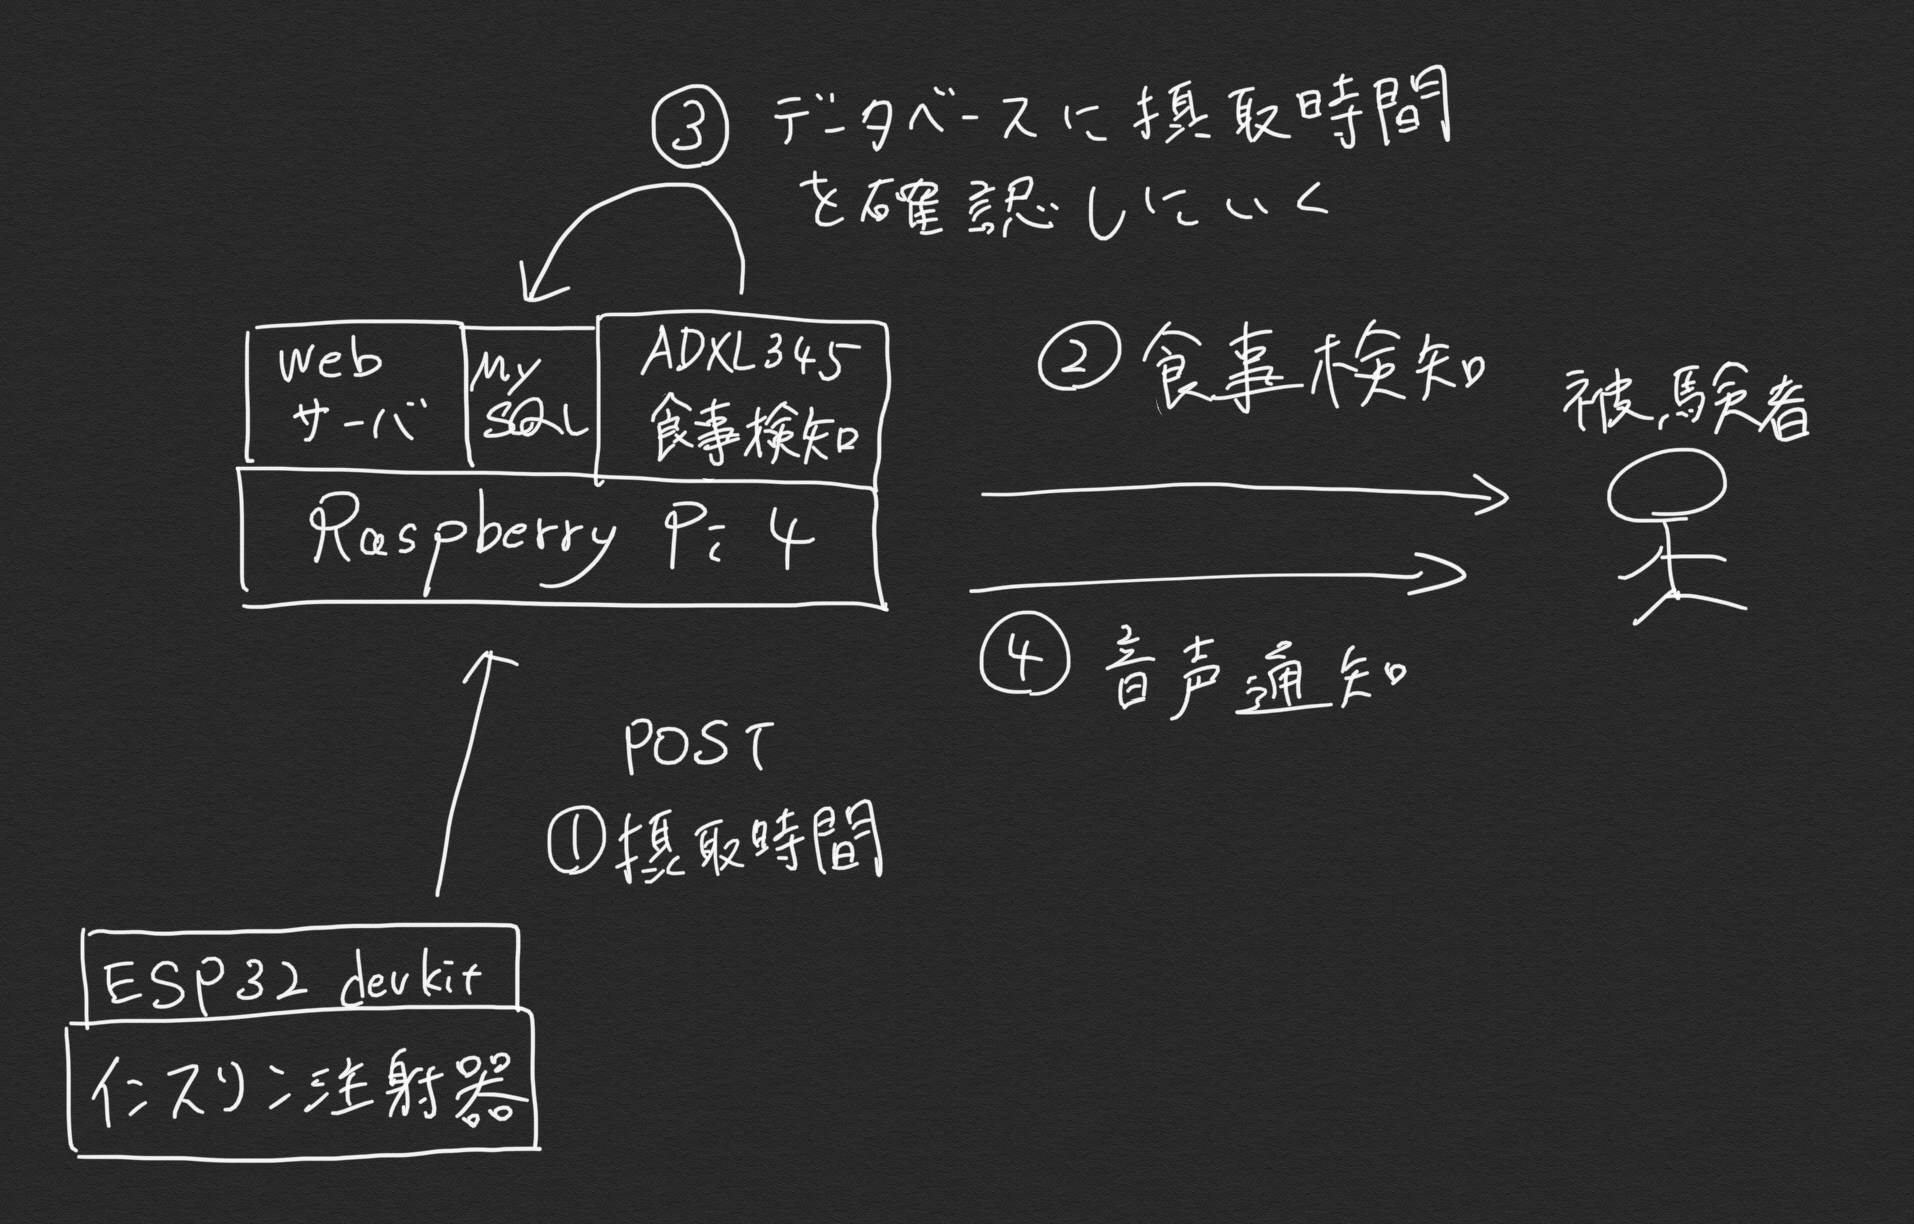 ③ データベースに摂取時間
を確認しにいく
Web
サーバ
My
SQL
ADXL345
食事検知
Raspberry Pi 4
② 食事検知
被験者
④ 音声通知
POST
①摂取時間
ESP32 devkit
インスリン注射器